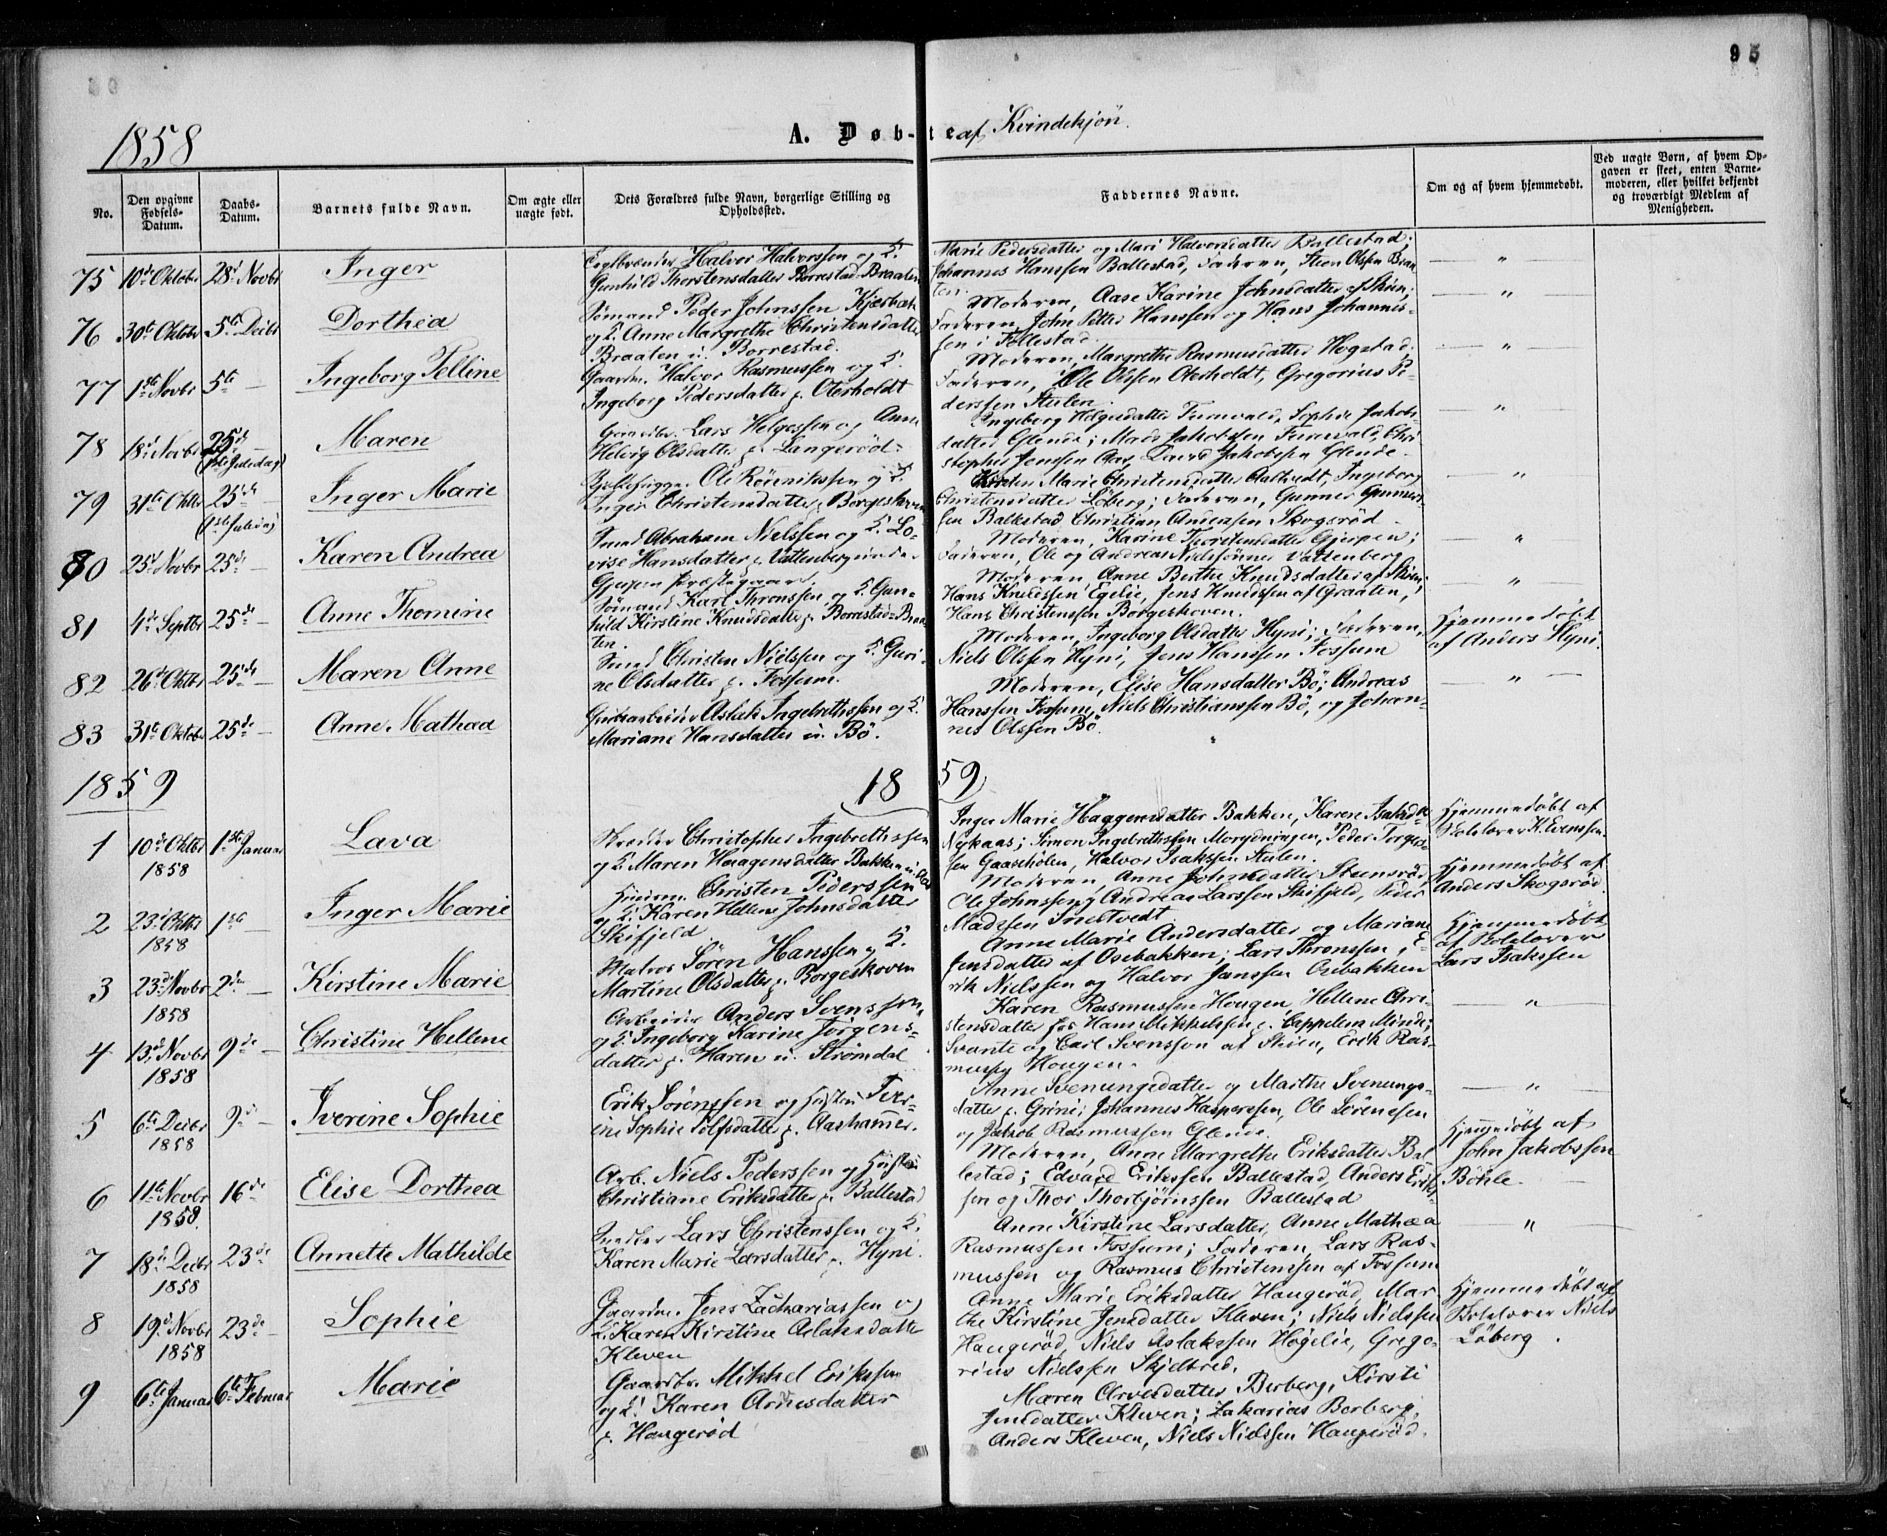 95
1858
A. Døb-te af Kvindekjøn.
No.
Den opgivne Fødsels-Datum.
Daabs-Datum.
Barnets fulde Navn.
Om ægte eller uægte født.
Dets Forældres fulde Navn, borgerlige Stilling og Opholdssted.
Faddernes Navne.
Om og af hvem hjemmedøbt.
Ved uægte Børn, af hvem Opgaven er skeet, enten Barnemoderen, eller hvilket bekjendt og troværdigt Medlem af Menigheden.
75 10d. Oktober 28d. Novbr Inger
Halvor Halvorssen og H.
Gunhild Thorstensdatter Borrestad-Braaten
Marie Pedersdatter og Mari Halvorsdatter Ballestad;
Johannes Hanssen Ballestad, Faderen, Steen Olsen Braa-
ten.
76 30te Oktober 5te Decbr Dorthea
Sömand Peder Johnssen Kjærbæk
og H. Anne Margrethe Christensdatter
Braaten u. Borrestad.
Moderen, Aase Karine Johnsdatter af Skien;
Faderen, John Petter Hanssen og Hans Johannes-
sen i Follestad.
77 1ste Novbr 5te — Ingeborg Telline
Gaardm. Halvor Rasmussen og H.
Ingeborg Pedersdatter p. Oterholdt
Moderen, Margrethe Rasmusdatter Hogstad,
Faderen, Ole Olssen Oterholdt, Gregorius Pe-
derssen Stulen.
78 18d. Novbr 25de (1ste Juledag) Maren
Lars Helgessen og Anne
Helvig Olsdatter p. Langerød.
Ingeborg Helgesdatter Furuvald, Sophie Jakobs-
datter Glende; Mads Jakobssen Furuvald, Chri-
stopher Jenssen Aas, Jakobssen Glende.
79 31te Oktbr 25de (1ste Juledag) Inger Marie
Ole Rørenikssen og H.
Inger Christensdatter p. Borgeskoven
Kirsten Marie Christensdatter, Ingeborg
Christensdatter Löberg; Faderen, Gunner Gunner-
sen Ballestad, Christian Anderssen Skogsrød.
80 25d. Novbr 25de — Karen Andrea
Smed Abraham Nielssen og H. Lo-
vise Hansdatter p. Vattenberg under
Gjerpen Præstegaard.
Moderen, Karine Thorstensdatter Gjerpen;
Faderen, Ole og Andreas Nielssönner Vattenberg.
81 4de Septbr 25de — Anne Thomine
Sömand Karl Thronssen og H. Gun-
hild Kirstine Knudsdatter p. Borrestad-Braa-
ten.
Moderen, Anne Berthe Knudsdatter af Skien;
Hans Knudssen Egelie, Jens Knudssen af Graaten,
Hans Christenssen Borgeskoven.
82 26de Oktbr 25de — Maren Anne
Smed Christen Nielssen og H. Guri-
ne Olsdatter p. Fossum.
Moderen, Ingeborg Olsdatter Hyni; Faderen,
Niels Olssen Hyni, Jens Hanssen Fossum
Hjemmedöbt
af Anders Hyni.
83 31te Oktober 25de — Anne Mathea
Grubearbeider Aslak Ingebrethssen og H.
Mariane Hansdatter u. Bö.
Moderen, Elise Hansdatter Bö; Andreas
Hanssen Fossum, Niels Christianssen Bö, og Johan-
nes Olssen Bö.
1859
1859
1 10de Oktbr 1858 1ste Januar Lava
Skræder Christopher Ingebrethssen
og H. Maren Haagensdatter Bakken u. Aas
Inger Marie Haagensdatter Bakken, Karen Isaksd.
Nykaas; Simon Ingebrethssen Morgedningen, Peder Torges-
sen Gaasehölen, Halvor Isakssen Stulen.
Hjemmedöbt af
Skolelærer K. Evenssen.
2 23d. Oktbr 1858 1ste — Inger Marie
Huusm. Christen Pederssen
og H. Karen Hellene Johnsdatter
Skifjeld
Moderen, Anne Johnsdatter Steensrød,
Ole Johnssen og Andreas Larssen Skifjeld, Peder
Madssen Smedtvedt.
Hjemmedöbt af
Anders Skogsrød.
3 23d. Novbr 1858 2den — Kirstine Marie
Matros Sören Hanssen og H.
Martine Olsdatter p. Borgeskoven
Anne Marie Andersdatter og Mariane
Jensdatter af Osebakken; Lars Thronssen, E-
rik Nielssen og Halvor Janssen Osebakken
Hjemmedöbt
af Skolelærer
Lars Isakssen
4 13d. Novbr 1858 9de — Christine Hellene
Arbeider Anders Svensson
og H. Ingeborg Karine Jörgens-
datter p. Haren u. Strømdal
Karen Rasmussen Hougen, Hellene Chri-
stensdatter for Hans Mikkelssen p. Cappelens Minde;
Svante og Carl Svensson af Skien, Erik Ras-
mussen Hougen.
5 6te Decbr 1858 9de — Iverine Sophie
Erik Sörenssen og Hustru Iver-
ine Sophie Rolfsdatter p. Aashammer.
Anne Svenungsdatter og Marthe Svenungs-
datter p. Grini; Johannes Kasperssen, Ole Sörenssen
og Jakob Rasmussen Glende.
6 11te Novbr 1858. 16de Elise Dorthea
Arb. Niels Pederssen og Hustru
Christiane Eriksdatter p. Ballestad
Moderen, Anne Margrethe Eriksdatter Bal-
lestad; Edvard Erikssen Ballestad, Anders Eriks-
sen og Thor Thorbjörnssen Ballestad
Hjemmedöbt af
John Jakobssen
Böhle.
7 18de Decbr 1858 23de Annette Mathilde
Snedker Lars Christenssen og H.
Karen Marie Larsdatter p. Hyni.
Anne Kirstine Larsdatter, Anne Mathea
Rasmussen Fossum; Faderen, Lars Ras-
mussen og Rasmus Christenssen af Fossum
8 19d. Novbr 1858 23de — Sophie
Gaardm. Jens Zachariassen og
H. Karen Kirstine Aslaksdatter
Kleven
Anne Marie Eriksdatter Haugerød, Mar-
the Kirstine Jensdatter Kleven; Niels Nielssen
Haugerød, Niels Aslakssen Högelie, Grego-
rius Nielssen Skjelbred.
Hjemmedöbt af
Skolelærer Niels
Löberg.
9 6te Januar 6te Februar Marie
Gaardbr. Mikkel Erikssen
og H. Karen Arnesdatter
p. Haugerød
Maren Arvesdatter Berberg, Kirsti
Jensdatter Kleven; Zakarias Borberg,
Anders Kleven, Niels Nielssen Haugerød.